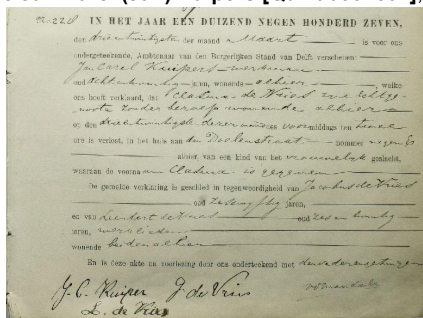 IN HET JAAR EEN DUIZEND NEGEN HONDERD ZEVEN,
den drie en twintigsten der maand Maart is voor ons
ondergeteekende, Ambtenaar van den Burgerlijken Stand van Delft verschenen:
Jan Carel Kuipers werkman
oud jaren, wonende alhier welke
ons heeft verklaard, dat Clasina de Vries zijne echtge-
noote zonder beroep wonende alhier
op den dezer maand des voormiddags ten
ure is verlost, in het huis aan de Doelenstraat nummer negen
alhier, van een kind van het vrouwelijk geslacht,
waaraan de voornaam Clasina is gegeven
De gemelde verklaring is geschied in tegenwoordigheid van Jacobus de Vries
oud zes en vijftig jaren,
en van Leendert de Vries oud zes en twintig
jaren, werklieden
wonende beiden alhier
En is deze akte na voorlezing door ons onderteekend met den vader en getuigen
J. C. Kuiper J. de Vries
L. de Vries